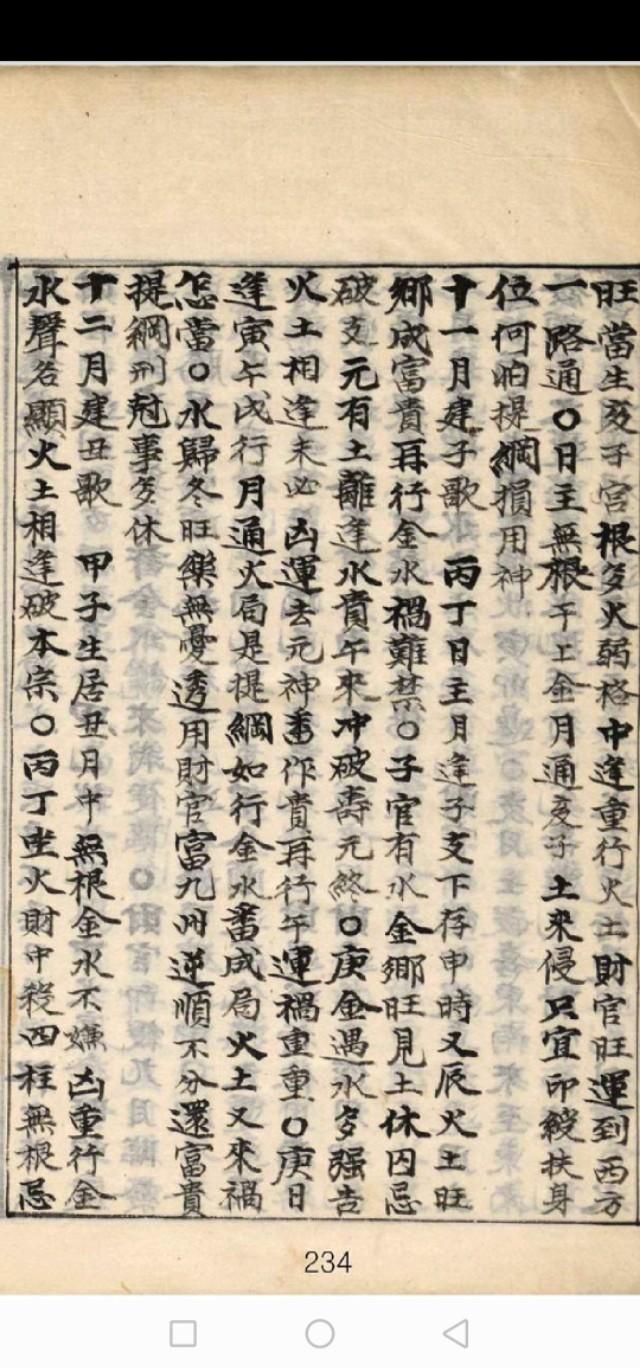 旺當生亥子宮根多火弱格中逢重行火土財官旺運到西方
一路通〇日主無根干上金月通亥子土來侵只宜印綬扶身
位何怕提綱損用神
十一月建子歌 丙丁日主月逢子支下存申時又辰火土旺
鄉成富貴再行金水禍難禁〇子官有水金鄉旺見土休囚忌
破支元有土離逢水貴午來冲破壽元終〇庚金遇水多强告
火土相逢未必凶運去元神畨作貴再行午運禍重重〇庚日
逢寅午戌行月通火局是提綱如行金水畨成局火土又來禍
怎當〇水歸冬旺樂無憂透用財官富九州逆順不分還富貴
提綱刑尅事多休
十二月建丑歌 甲子生居丑月中無根金水不嫌凶重行金
水聲名顯火土相逢破本宗〇丙丁坐火財中殺四柱無根忌
234